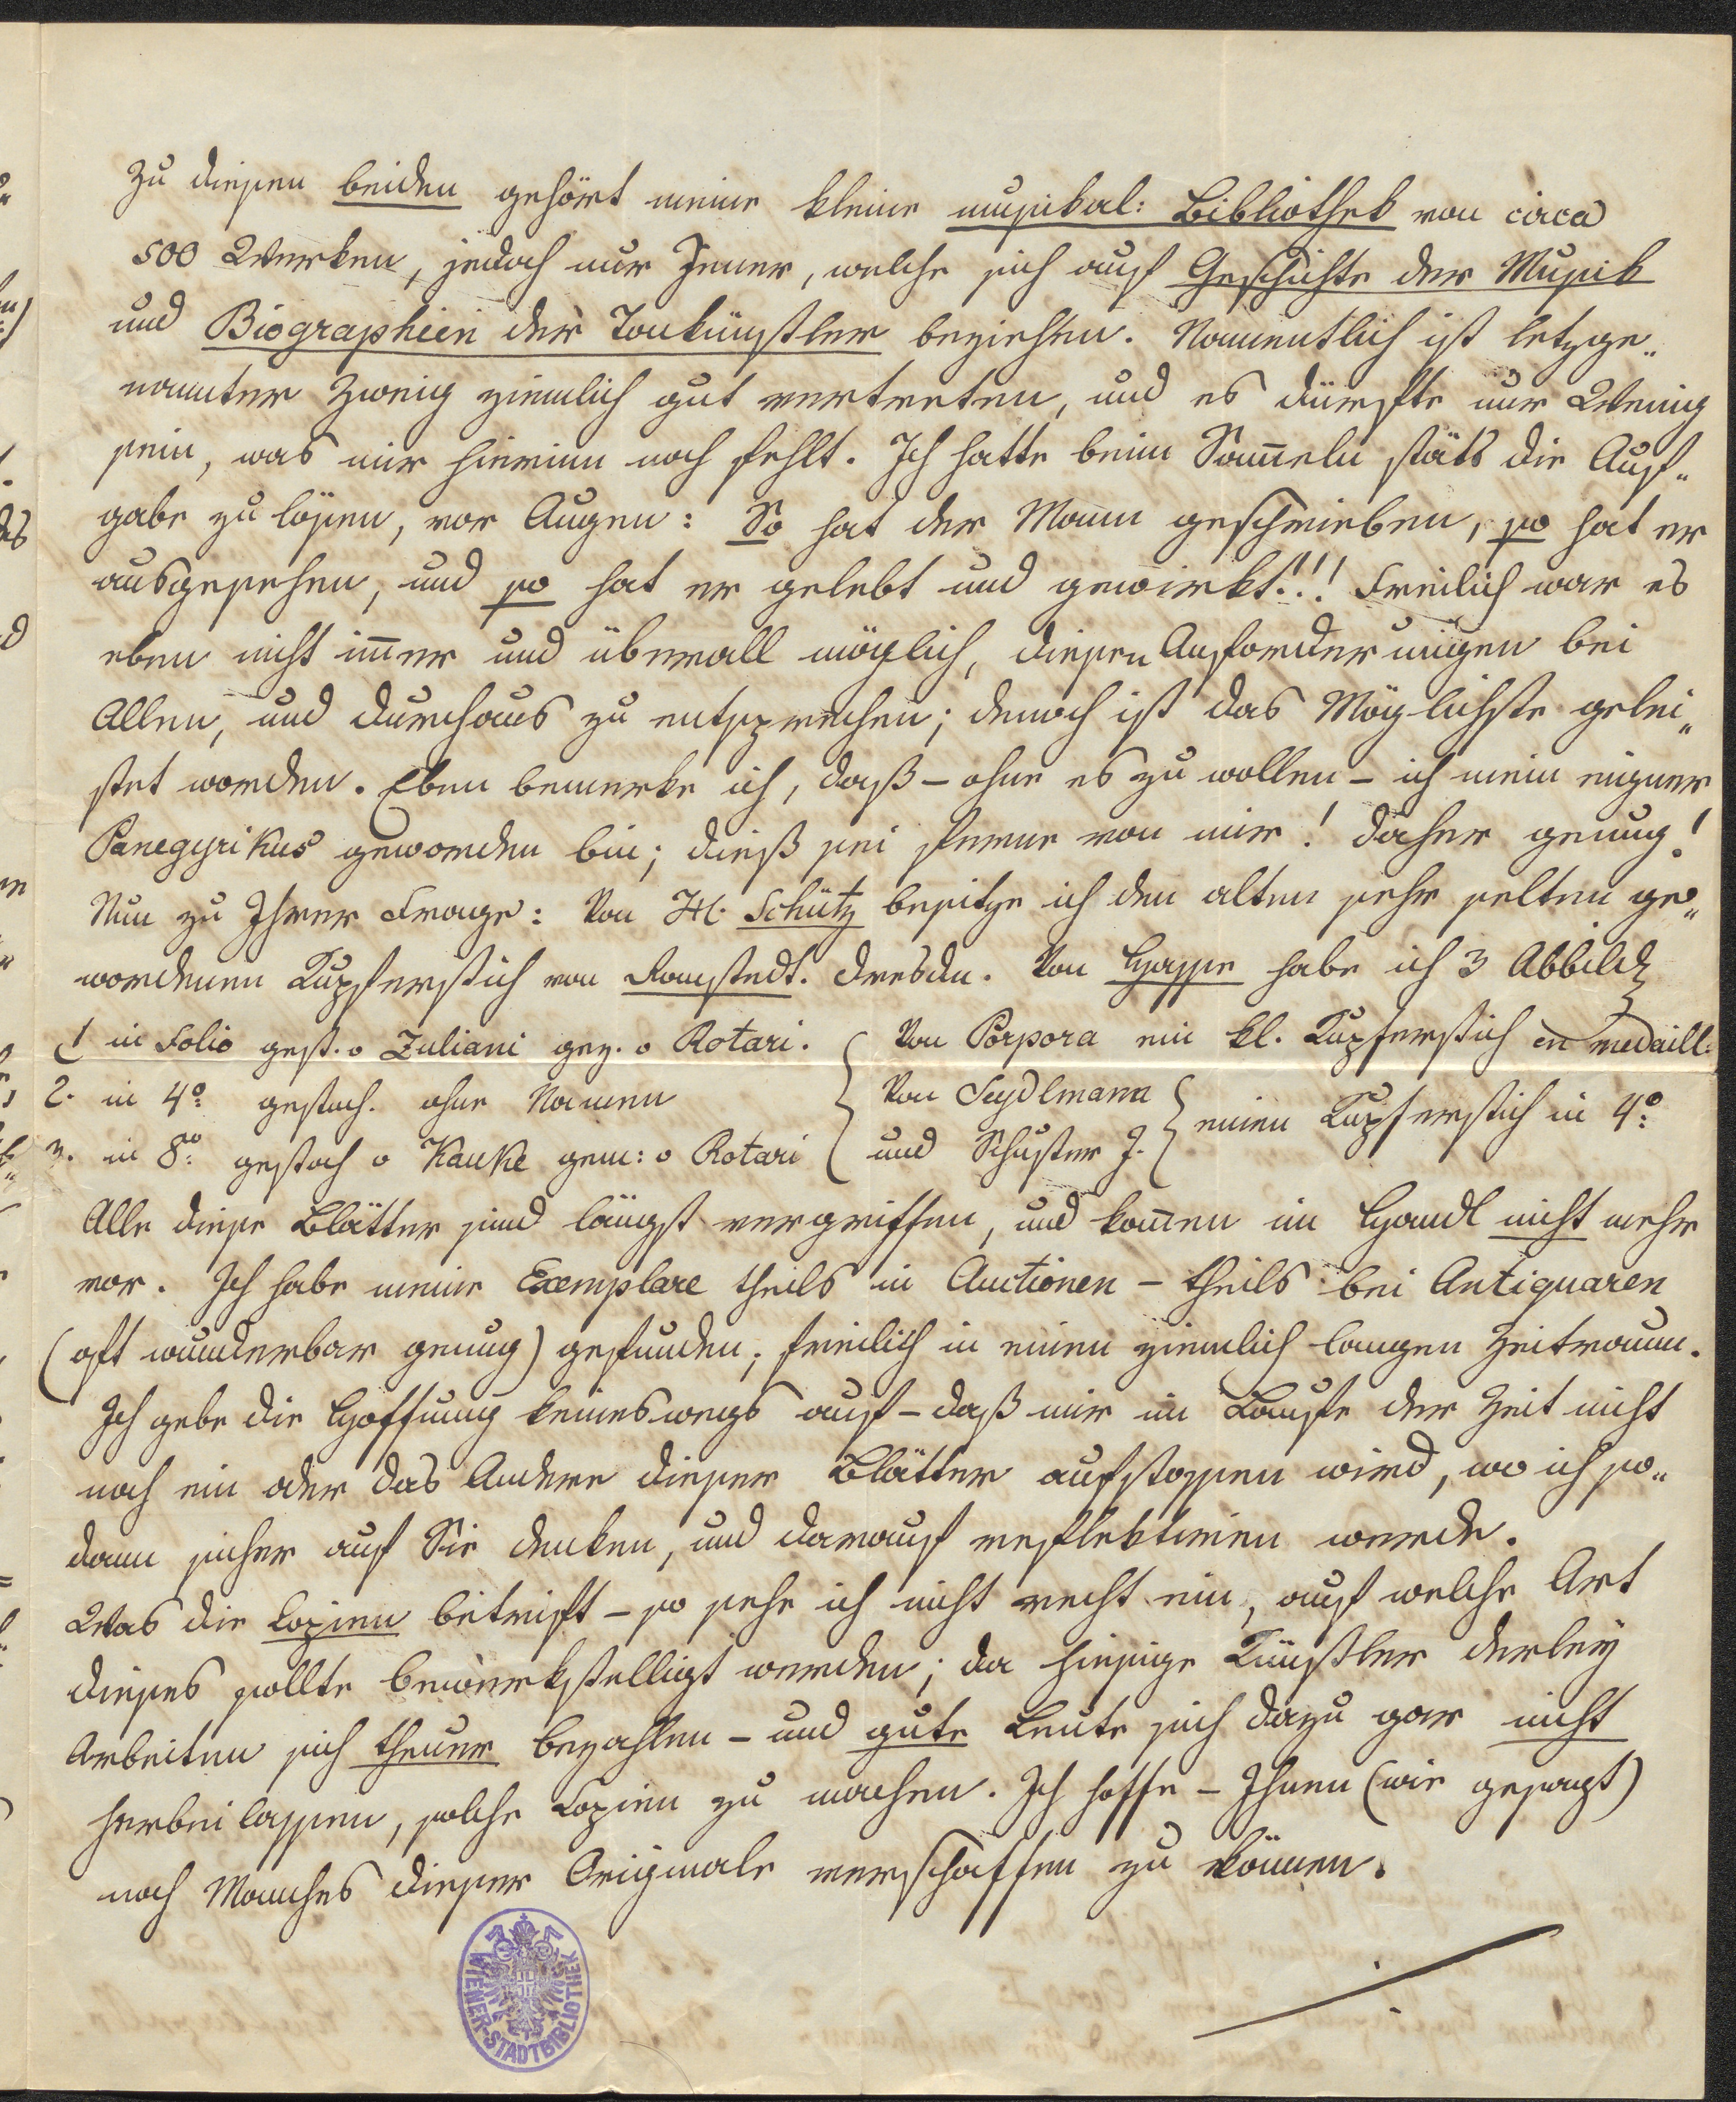 Zu diesen beiden gehört meine kleine musikal: Bibliothek von circa
500 Werken, jedoch nur Jener, welche sich auf Geschichte der Musik
und Biographien der Tonkünstler beziehen. Namentlich ist letzge„
nannter Zweig ziemlich gut vertreten, und es dürfte nur Wenig
sein, was mir hierinn noch fehlt. Ich hatte beim Sam̄eln stäts die Auf„
gabe zu lösen, vor Augen: So hat der Mann geschrieben, so hat er
ausgesehen, und so hat er gelebt und gewirkt!!! Freilich war es
eben nicht im̄er und überall möglich, diesen Anforderungen bei
Allen, und durchaus zu entsprechen; denoch ist das Möglichste gelei„
stet worden. Eben bemerke ich, daß – ohne es zu wollen – ich mein eigner
Panegyrikus geworden bin; dieß sei ferne von mir! daher genug!
Nun zu Ihrer Frage: Von H. Schütz besitze ich den alten sehr selten ge„
wordenen Kupferstich von Romstedt. Dresden. Von Hasse habe ich 3 Abbild
1 in Folio gest. v Zuliani gez. v Rotari.
2. in 4o: gestoch. ohne Namen
3. in 8o: gestoch v Kauke gem: v Rotari
Von Porpora ein kl. Kupferstich en medaill:
Von Seydlmann
und Schuster J.
einen Kupferstich in 4o:
Alle diese Blätter sind längst vergriffen, und kom̄en im Handl nicht mehr
vor. Ich habe meine Exemplare theils in Auctionen – theils bei Antiquaren
(oft wunderbar genug) gefunden; freilich in einen ziemlich langen Zeitraum.
Ich gebe die Hoffnung keineswegs auf – daß mir im Laufe der Zeit nicht
noch ein oder das Andere dieser Blätter aufstossen wird, wo ich so„
dann sicher auf Sie denken, und darauf reflektiren werde.
Was die Copien betrifft – so sehe ich nicht recht ein, auf welche Art
dieses sollte bewerkstelligt werden; da hiesige Künstler derley
Arbeiten sich theuer bezahlen – und gute Leute sich dazu gar nicht
herbeilassen, solche Copien zu machen. Ich hoffe – Ihnen (wie gesagt)
noch Manches dieser Originale verschaffen zu können.
WIENER-STADTBIBLIOTHEK